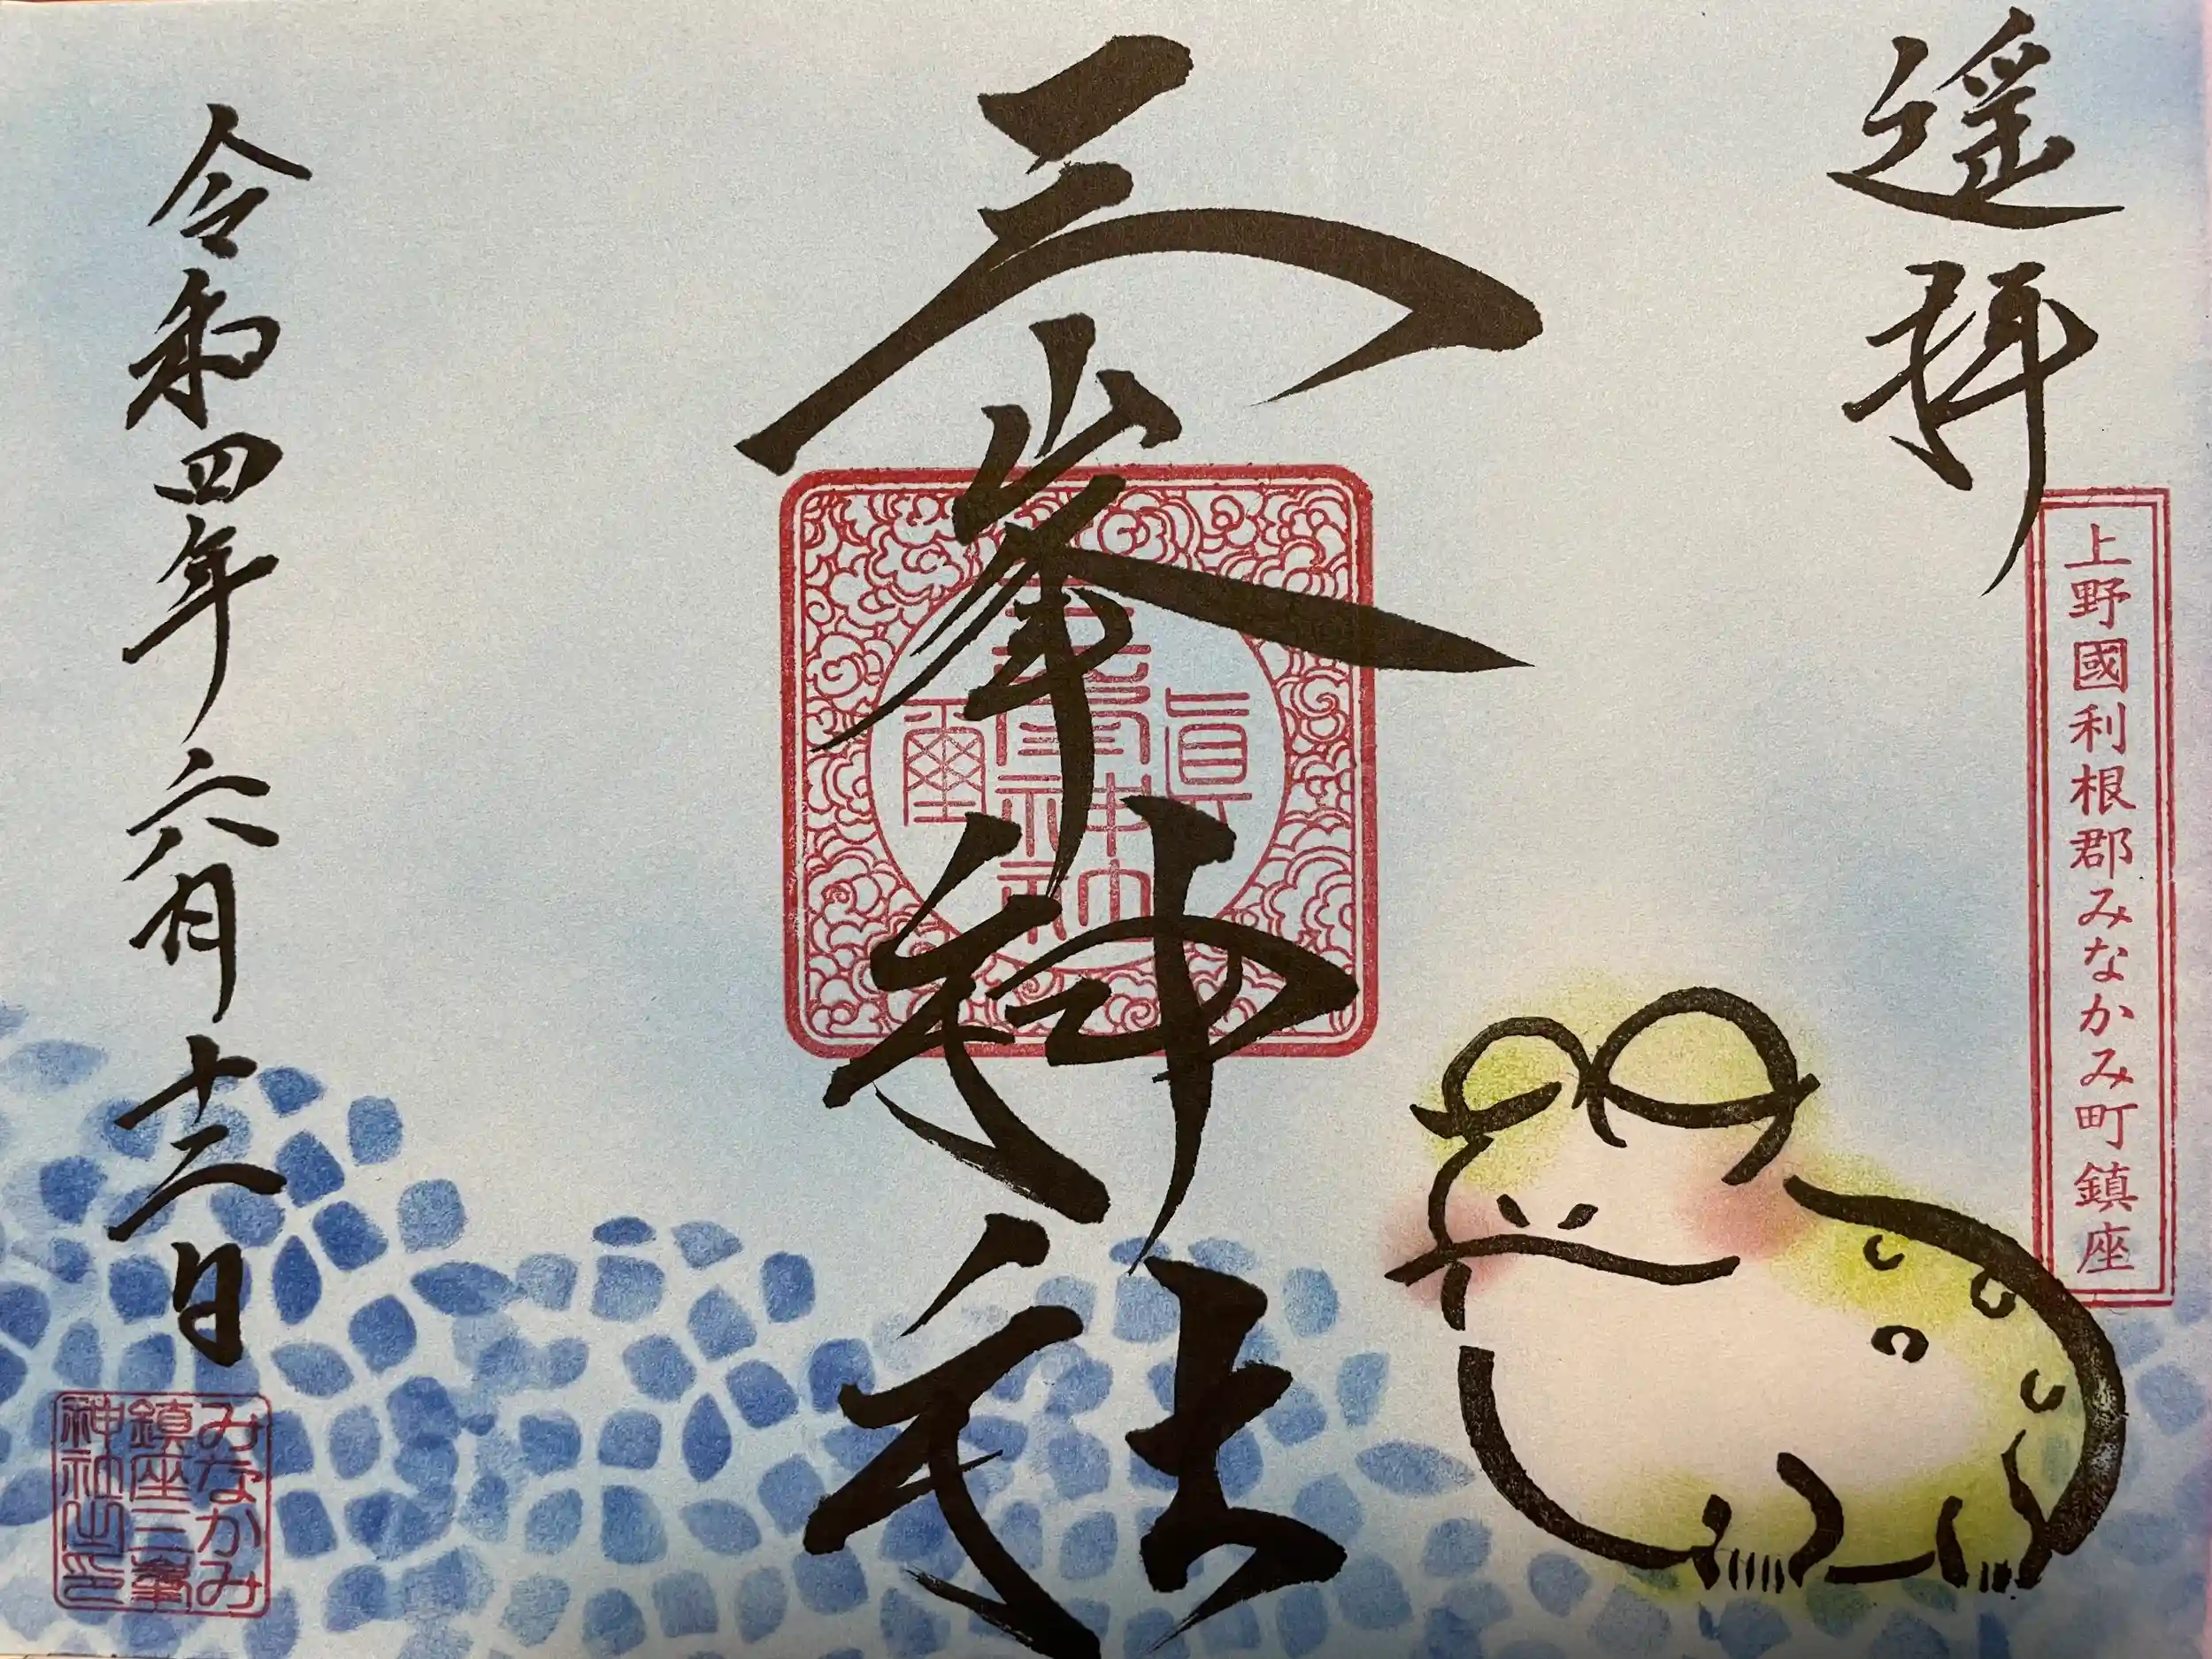 遥拝
上野國利根郡みなかみ町鎮座
三峯神社
眞
三峯神社
璽
令和四年六月十二日
みなかみ
鎮座三峯
神社之印